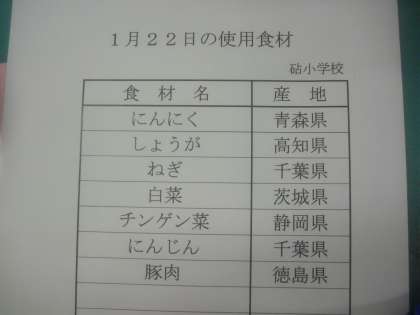 1月22日の使用食材
砧小学校
食 材 名 産 地
にんにく 青森県
しょうが 高知県
ねぎ 千葉県
白菜 茨城県
チンゲン菜 静岡県
にんじん 千葉県
豚肉 徳島県